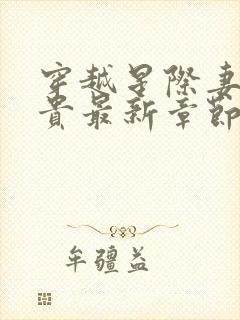 穿越星際妻
貴最新章節
牟疆益